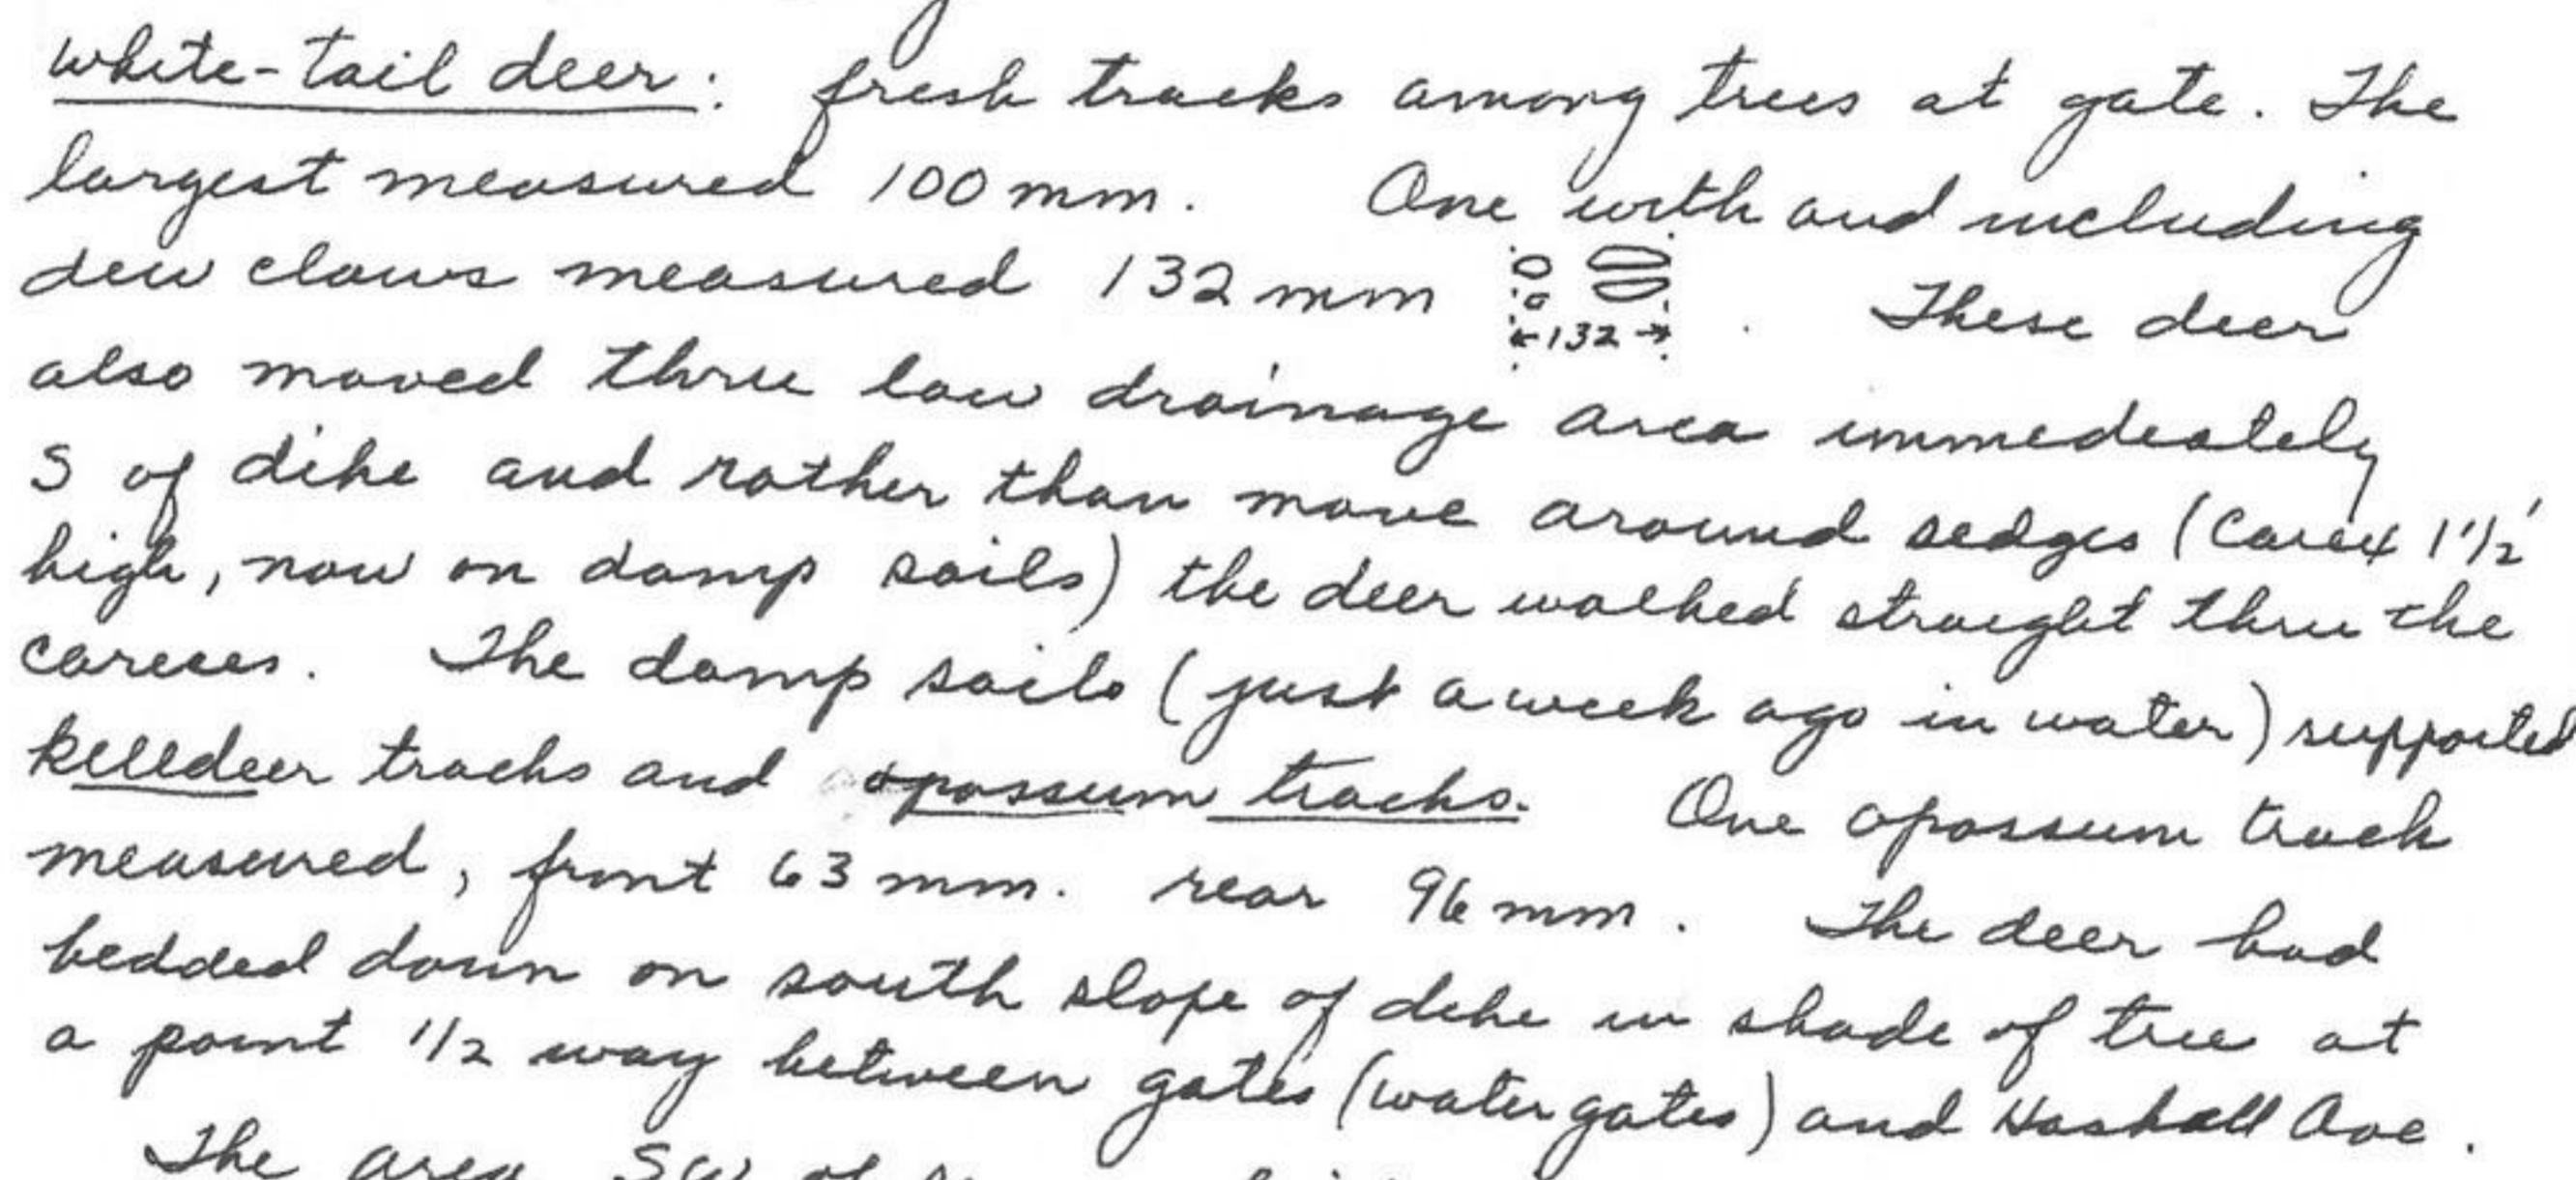 white-tail deer: fresh tracks among trees at gate. The
largest measured 100 mm. One with and including
dew claws measured 132 mm . These deer
←132→
also moved thru low drainage area immediately
S of dike and rather than move around sedges (Carex 1 1/2'
high, now on damp soils) the deer walked straight thru the
careces. The damp soils (just a week ago in water) supported
killdeer tracks and opossum tracks. One opossum track
measured, front 63 mm. rear 96 mm. The deer had
bedded down on south slope of dike in shade of tree at
a point 1/2 way between gates (water gates) and Haskell Ave.
The area SW of